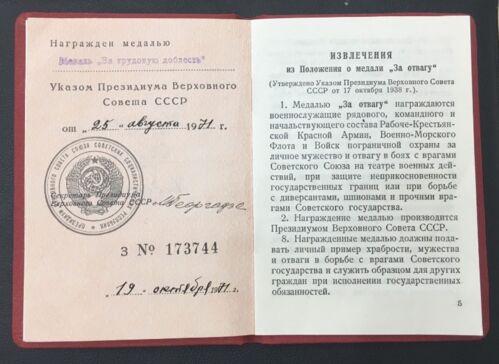 Награжден медалью
Медаль „За трудовую доблесть"
Указом Президиума Верховного
Совета СССР
от „25" августа 1971 г.
Секретарь Президиума
Верховного Совета СССР Георгадзе
З № 173744
„19" октября 1971 г.
ИЗВЛЕЧЕНИЯ
из Положения о медали „За отвагу"
(Утверждено Указом Президиума Верховного Совета
СССР от 17 октября 1938 г.)
1. Медалью „За отвагу" награждаются
военнослужащие рядового, командного и
начальствующего состава Рабоче-Крестьян-
ской Красной Армии, Военно-Морского
Флота и Войск пограничной охраны за
личное мужество и отвагу в боях с врагами
Советского Союза на театре военных
действий, при защите неприкосновенности
государственных границ или при борьбе
с диверсантами, шпионами и прочими вра-
гами Советского государства.
2. Награждение медалью производится
Президиумом Верховного Совета СССР.
8. Награжденные медалью должны пода-
вать личный пример храбрости, мужества
и отваги в борьбе с врагами Советского
государства и служить образцом для других
граждан при исполнении государственных
обязанностей.
5